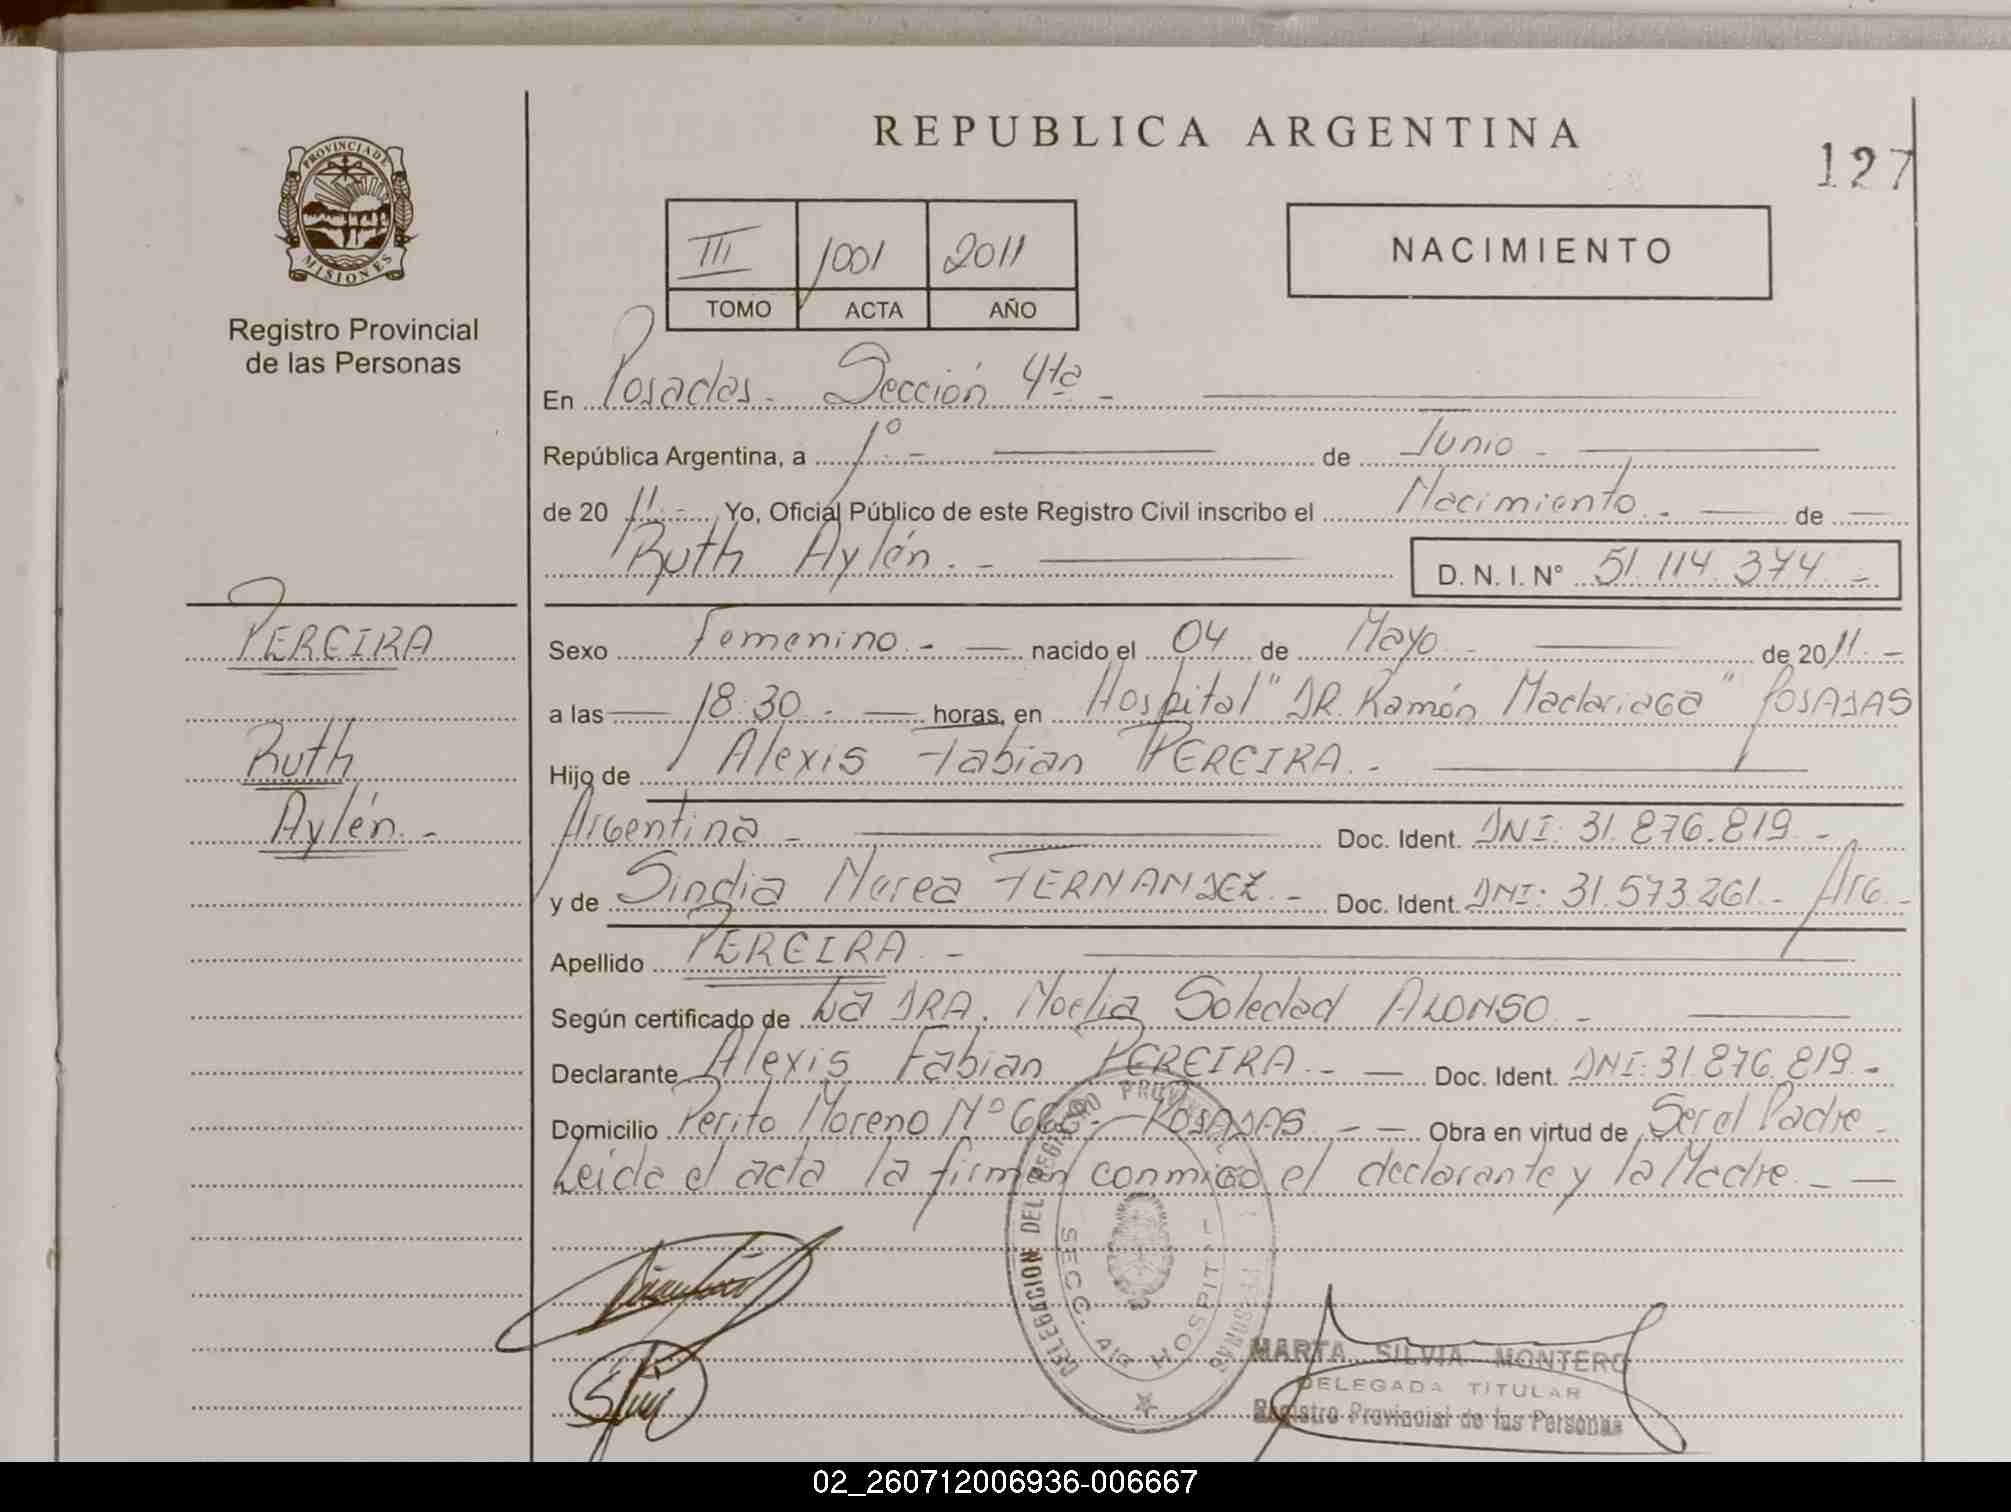 REPUBLICA ARGENTINA
127
PROVINCIA DE
MISIONES
Registro Provincial
de las Personas
III 1001 2011
TOMO ACTA AÑO
NACIMIENTO
En Posadas.- Sección 4ta -
República Argentina, a 1º.- de Junio -
de 20 11.- Yo, Oficial Público de este Registro Civil inscribo el Nacimiento.- de
Ruth Aylén.- D. N. I. Nº 51.114.374 -
PEREIRA
Ruth
Aylén.-
Sexo Femenino.- nacido el 04 de Mayo - de 20 11.-
a las 18:30.- horas, en Hospital "DR. Ramón Madariaga" POSADAS
Hijo de Alexis Fabian PEREIRA.-
Argentina - Doc. Ident. DNI: 31.876.819.-
y de Sindia Nerea FERNANDEZ.- Doc. Ident. DNI: 31.573.261.- Arg.-
Apellido PEREIRA.-
Según certificado de La DRA. Noelia Soledad ALONSO.-
Declarante Alexis Fabian PEREIRA.- Doc. Ident. DNI: 31.876.819.-
Domicilio Perito Moreno Nº POSADAS.- Obra en virtud de Ser el Padre -
Leida el acta la firman conmigo el declarante y la Madre.-
DELEGACION DEL REGISTRO PROVINCIAL DE LAS PERSONAS
SECC. 4ta HOSPITAL
MARTA SILVIA MONTERO
DELEGADA TITULAR
Registro Provincial de las Personas
02_260712006936-006667